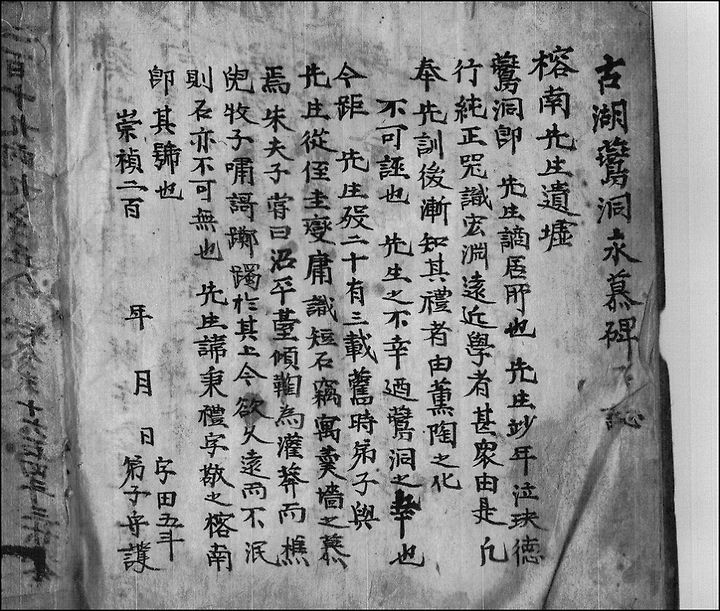 古湖鶯洞永慕碑誌
榕南先生遺墟
鶯洞卽 先生謫居所也 先生妙年泣玦德
行純正咒識宏淵遠近學者甚衆由是凡
奉先訓後漸知其禮者由薰陶之化
不可誣也 先生之不幸迺鶯洞之幸也
今距 先生歿二十有三載舊時弟子與
先生從侄圭燮庸識短石竊寓羹墻之慕
焉朱夫子嘗曰沼平臺傾鞠為灌莽而樵
兒牧子嘯謌躑躅於其上今欲久遠而不泯
則石亦不可無也 先生諱秉禮字敬之榕南
卽其號也
崇禎二百 年 月 日
字田五年
弟子守護